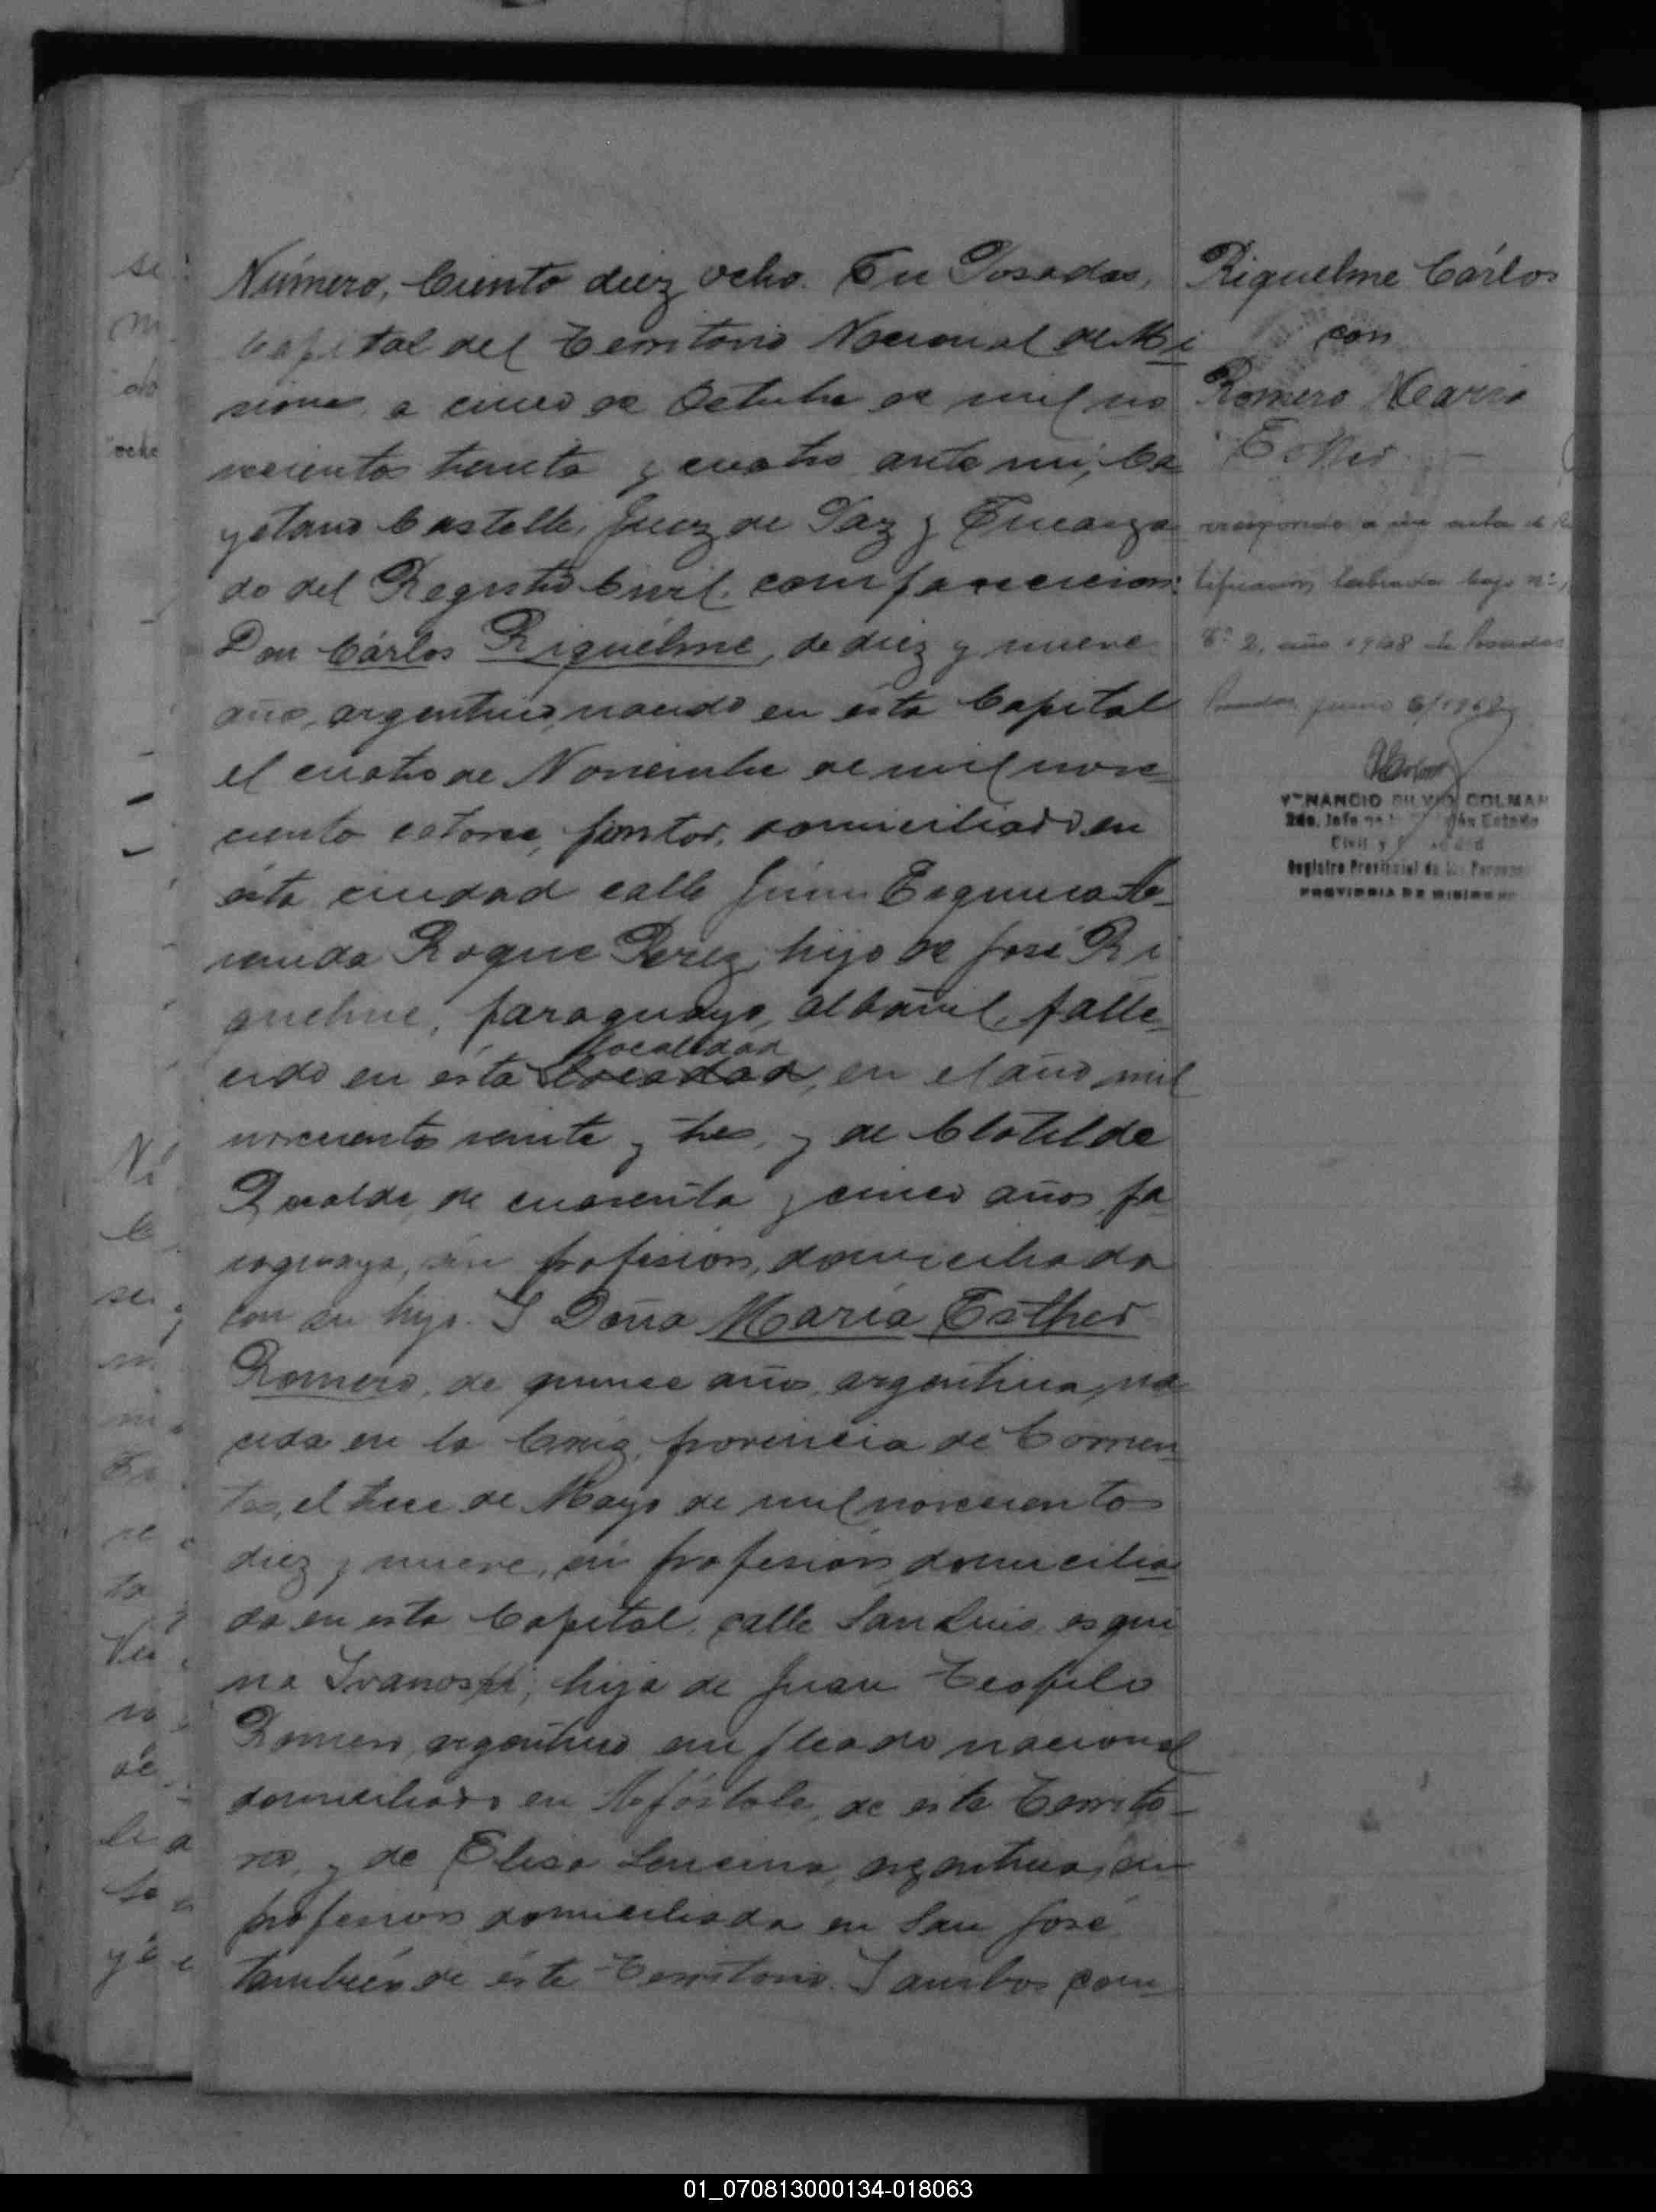 Número, Ciento diez ocho. En Posadas,
Capital del Territorio Nacional de Mi
siones, a cinco de Octubre de mil no
vecientos treinta y cuatro, ante mi, Ca
yetano Castelli, Juez de Paz y Encarga
do del Registro Civil, comparecieron:
Don Cárlos Riquélme, de diez y nueve
años, argentino, nacido en ésta Capital
el cuatro de Noviembre de mil nove
ciento catorce, pintor, domiciliado en
ésta ciudad calle Junin Esquina A-
venida Roque Perez, hijo de José Ri
quelme, paraguayo, albañil, falle
localidad
cido en ésta en el año mil
novecientos veinte y tres, y de Clotilde
de cuarenta y cinco años, pa
raguaya, sin profesion, domiciliada
con su hijo. Y Doña María Esther
Romero, de quince años, argentina, na
cida en la Cruz, provincia de Corrien
tes, el trece de Mayo de mil novecientos
diez y nueve, sin profesión, domicilia
da en esta Capital, calle San Luis esqui
na hija de Juan Teofilo
Romero, argentino, empleado nacional
domiciliado en Apóstoles, de este Territo-
rio, y de Elisa Lencina, argentina, sin
profesion domiciliada en San José,
también de éste Territorio. Y ambos com
Riquelme Cárlos
con
Romero María
Esther
corresponde a un acta de
tificación labrada bajo nº
Tº 2, año 1968 de Posadas
Posadas, junio 6/1968
VENANCIO SILVIO COLMAN
2do. Jefe
Civil y
Registro Provincial de las Personas
PROVINCIA DE MISIONES
se
m
do
ocho
Ni
se
m
re
to
no
de
01_070813000134-018063